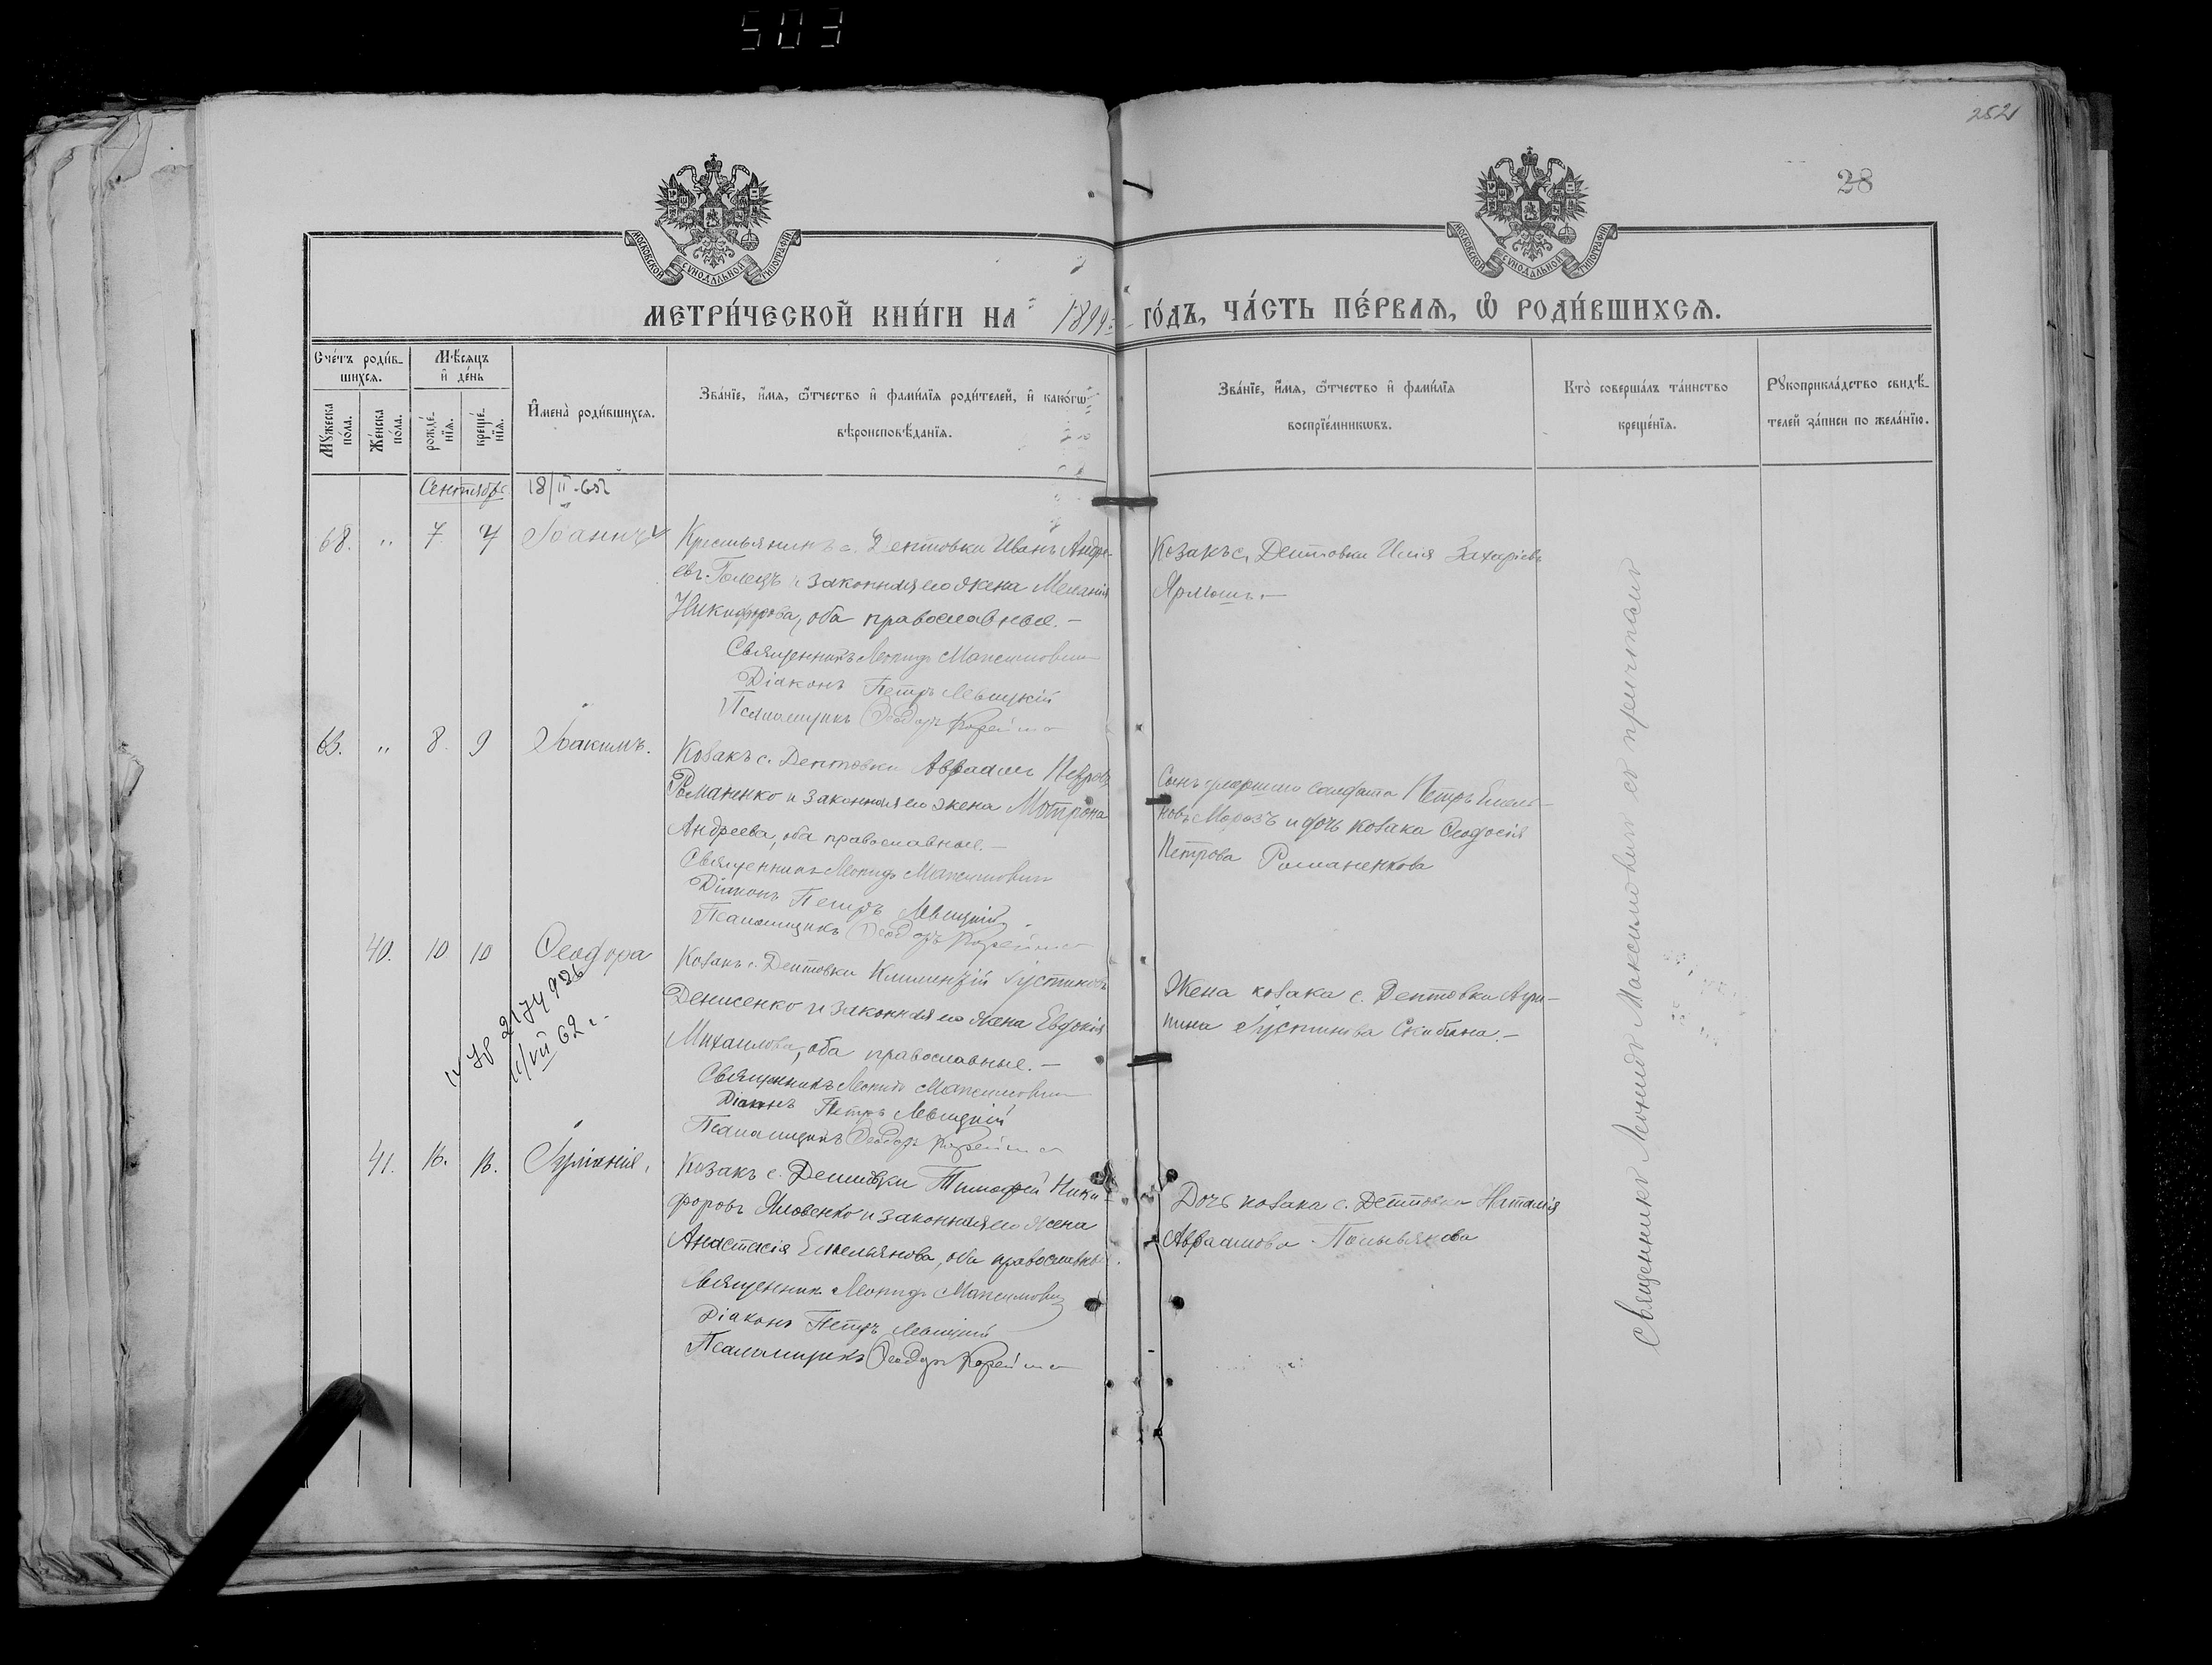 503
252
28
МОСКОВСКОЙ СѴНОДАЛЬНОЙ ТИПОГРАФІИ
МОСКОВСКОЙ СѴНОДАЛЬНОЙ ТИПОГРАФІИ
МЕТРИ́ЧЕСКОЙ КНИ́ГИ НА 1899 ГО́ДЪ, ЧА́СТЬ ПЕ́РВАЯ, Ѡ҆ РОДИ́ВШИХСЯ.
Сче́тъ роди́в-
шихся.
Мѣ́сяцъ
и҆ де́нь
Мꙋ́жеска
по́ла.
Же́нска
по́ла.
рожде́-
нїя.
креще́-
нїя.
И҆мена̀ роди́вшихся.
Зва́нїе, и҆́мя, ѻ҆́тчество и҆ фами́лїя роди́телей, и҆ како́гѡ
вѣроисповѣ́данїя.
Зва́нїе, и҆́мя, ѻ҆́тчество и҆ фами́лїя
воспрїе́мникѡвъ.
Кто̀ соверша́лъ та́инство
креще́нїя.
Рꙋкоприкла́дство свидѣ́-
телей за́писи по жела́нїю.
Сентябрь 18/II-65г
68. „ 7 7 Іоаннъ
Крестьянинъ с. Дептовки Иванъ Андре-
евъ Голецъ и законная его жена Меланія
Никифорова, оба православные.-
Священникъ Леонидъ Максимовичъ
Діаконъ Петръ Левицкій
Псаломщикъ Ѳеодоръ
Козакъ с. Дептовки Илія Захаріевъ
Ярмошъ.-
„ 8. 9 Іоакимъ.
Козакъ с. Дептовки Авраамъ Петровъ
Романенко и законная его жена Мотрона
Андреева, оба православные.-
Священникъ Леонидъ Максимовичъ
Діаконъ Петръ Левицкій
Псаломщикъ Ѳеодоръ
Сынъ умершаго солдата Петръ Емель-
новъ Морозъ и дочь козака Ѳеодосія
Петрова Романенкова
40. 10 10 Ѳеодора
2174926
11/VII 62 г.
Козакъ с. Дептовки Климентій Іустиновъ
Денисенко и законная его жена Евдокія
Михаилова, оба православные.-
Священникъ Леонидъ Максимовичъ
Діаконъ Петръ Левицкій
Псаломщикъ Ѳеодоръ
Жена козака с. Дептовки Агри-
пина Іустинова Скибина.-
41. 16. 16. Іуліанія.
Козакъ с. Дептовки Тимофей Ники-
форовъ Яковенко и законная его жена
Анастасія Емельянова, оба православн
Священникъ Леонидъ Максимовичъ
Діаконъ Петръ Левицкій
Псаломщикъ Ѳеодоръ
Дочь козака с. Дептовки Наталія
Авраамова
Священникъ Леонидъ Максимовичъ съ причтомъ